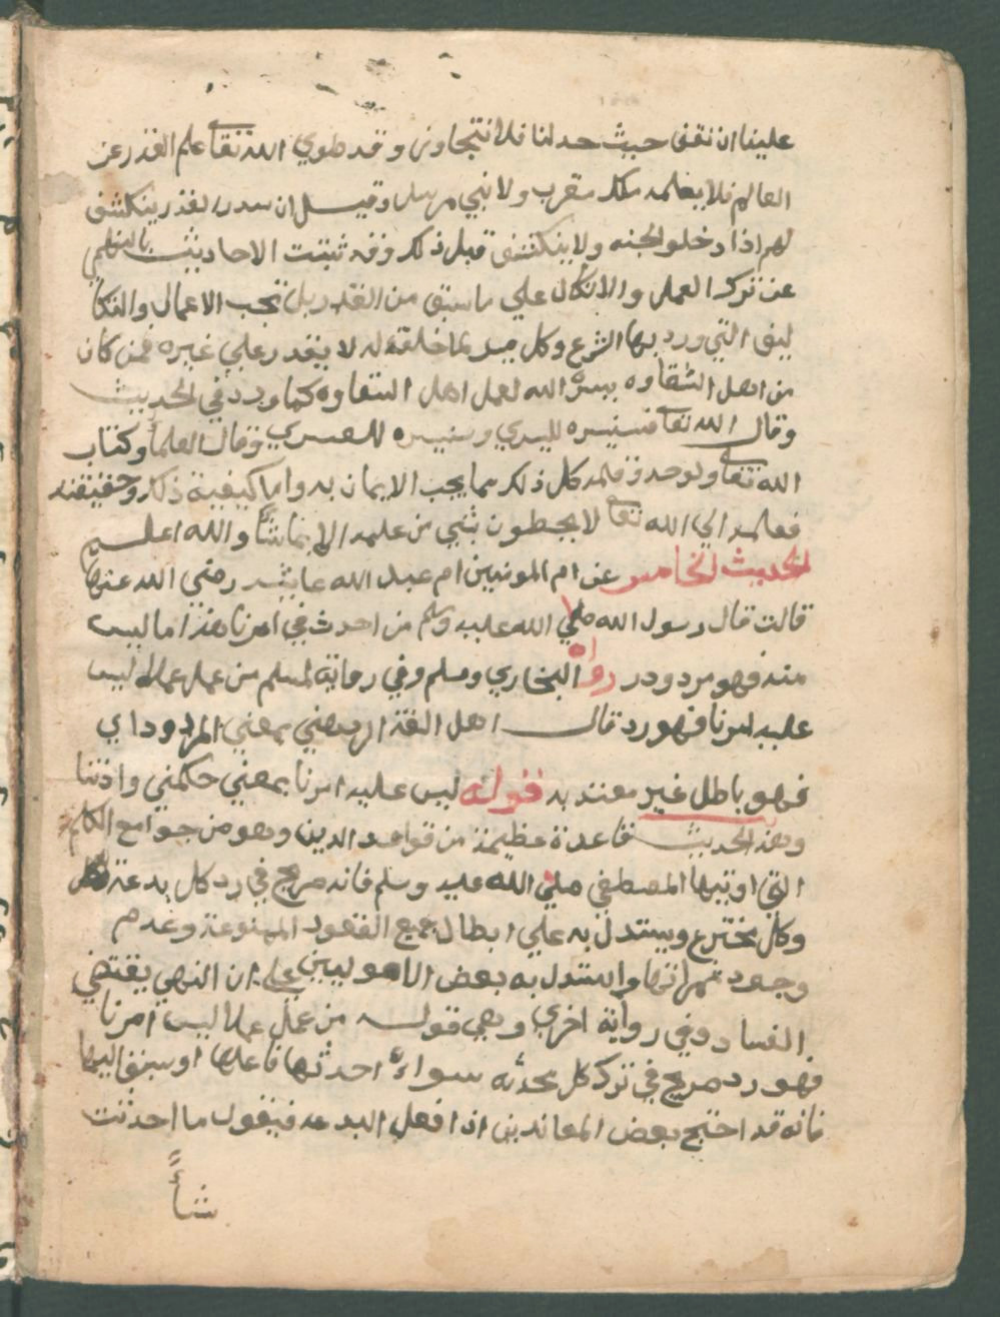 علينا ان نقف حيث حد لنا فلا نتجاوز وقد طوي الله تعالى علم القدر عن
العالم فلا يعلمه ملك مقرب ولا نبي مرسل وقيل ان سر القدر ينكشف
لهم اذا دخلو الجنه ولا ينكشف قبل ذلك وقد ثبتت الاحاديث بالنهي
عن ترك العمل والاتكال علي ما سبق من القدر بل تجب الاعمال والتكا
ليف التي ورد بها الشرع وكل ميسر لما خلق له لا يقدر علي غيره فمن كان
من اهل الشقاوه يسره الله لعمل اهل الشقاوه كما ورد في الحديث
وقال الله تعالى فسنيسره لليسري وسنيسره للعسري وقال العلما وكتاب
الله تعالى ولوحه وقلمه كل ذلك مما يجب الايمان به واما كيفية ذلك وحقيقته
فعلمه الي الله تعالى لا يحيطون بشي من علمه الا بما شاء والله اعلم
الحديث الخامس عن ام المومنين ام عبد الله عايشه رضي الله عنها
قالت قال رسول الله صلي الله عليه وسلم من احدث في امرنا هذا ما ليس
منه فهو مردود رواه البخاري ومسلم وفي رواية لمسلم من عمل عملا ليس
عليه امرنا فهو رد قال اهل اللغة الرد هني بمعني المردود اي
فهو باطل غير معتد به قوله ليس عليه امرنا بمعني حكمني واذننا
وهذ الحديث قاعدة عظيمة من قواعد الدين وهو من جوامع الكلم
التي اوتيها المصطفي صلي الله عليه وسلم فانه صريح في رد كل بدعة
وكل مخترع ويستدل به علي ابطال جميع العقود الممنوعة وعدم
وجود ثمراتها واستدل به بعض الاصوليين علي ان النهي يقتضي
الفساد وفي رواية اخري وهي قوله من عمل عملا ليس امرنا
فهو رد صريح في ترك كل محدثه سواء احدثها فاعلها او سبق اليها
فانه قد احتج بعض المعاندين اذا فعل البدعه فيقول ما احدثت
شأً